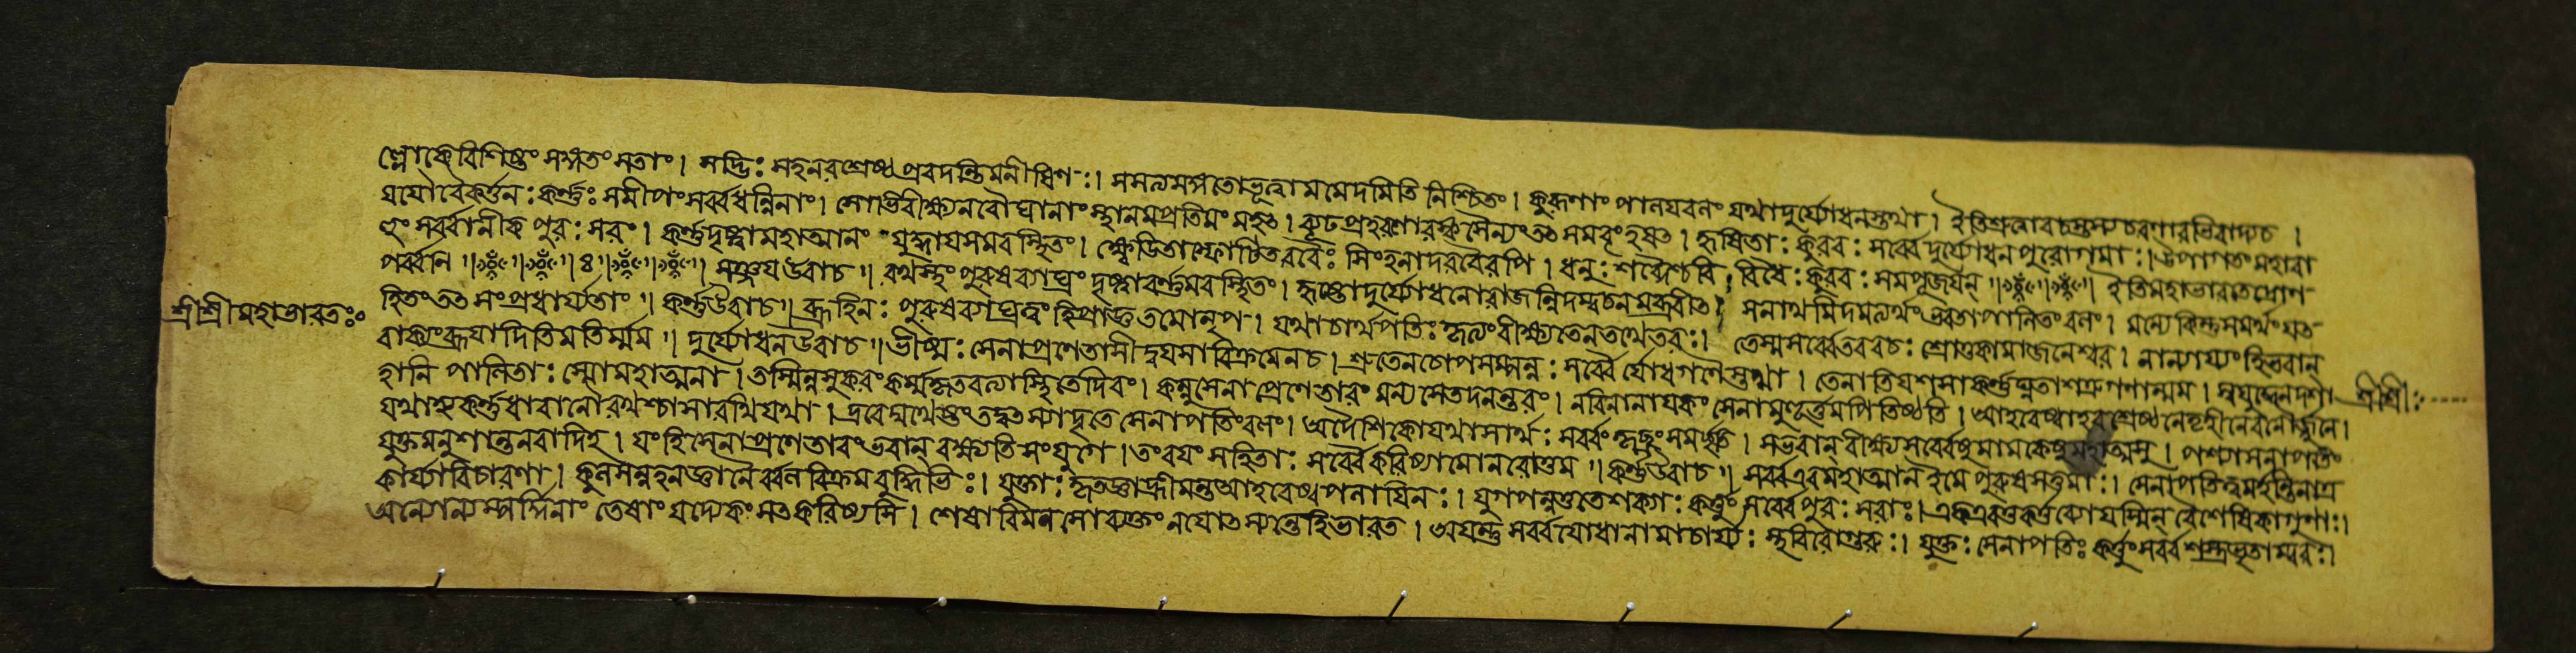 শ্লোকে বিশিষ্টং সঙ্গতং সতাং। সদ্ভিঃ সহ নরশ্রেষ্ঠ প্রবদন্তি মনীষিণঃ। স সত্যসঙ্গতো ভূত্বা মমেদমিতি নিশ্চিতং। কুরূণাং পালয বলং যথা দুর্যোধনস্তথা। ইতি শ্রুত্বা বচস্তস্য চরণাবভিবাদ্য চ।
যযৌ বৈকর্ত্তনঃ কর্ণ্ণঃ সমীপং সর্ব্বধন্বিনাং। সোভিবীক্ষ্য নরৌঘানাং স্থানমপ্রতিমং মহৎ। ব্যূঢপ্রহরণোরস্কং সৈন্যং তৎ সমবৃংহযৎ। হৃষিতাঃ কুরবঃ সর্ব্বে দুর্যোধনপুরোগমাঃ। উপাগতং মহাবা
হুং সর্ব্বানীকপুরঃসরং। কর্ণ্ণং দৃষ্ট্বা মহাত্মানং যুদ্ধায সমবস্থিতং। ক্ষ্বেডিতাস্ফোটিতরবৈঃ সিংহনাদরবৈরপি। ধনুঃশব্দৈশ্চ বিবিধৈঃ কুরবঃ সমপূজযন্॥ ইতি মহাভারতে দ্রোণ
পর্ব্বণি॥ ৪॥ সঞ্জয উবাচ॥ রথস্থং পুরুষব্যাঘ্রং দৃষ্ট্বা কর্ণ্ণমবস্থিতং। হৃষ্টো দুর্যোধনো রাজন্নিদম্বচনমব্রবীৎ। সনাথমিদমত্যর্থং ভবতা পালিতং বলং। মন্যে কিন্তু সমর্থং যৎ
শ্রীশ্রীমহাভারতঃ
হিতং তৎ সংপ্রধার্য্যতাং॥ কর্ণ্ণ উবাচ॥ ব্রূহি নঃ পুরুষব্যাঘ্র ত্বং হি প্রাজ্ঞতমো নৃপ। যথা চার্থপতিঃ কৃত্যং বীক্ষ্যতে ন তথেতরঃ। তে স্ম সর্ব্বে তব বচঃ শ্রোতুকামা জনেশ্বর। নান্যায্যং হি ভবান্
বাক্যং ব্রূযাদিতি মতির্ম্মম॥ দুর্যোধন উবাচ॥ ভীষ্মঃ সেনাপ্রণেতাসীদ্বযসা বিক্রমেন চ। শ্রুতেন চোপসম্পন্নঃ সর্ব্বৈর্যোধগণৈস্তথা। তেনাতিযশসা কর্ণ্ণ ঘ্নতা শত্রুগণান্মম। সুযুদ্ধেন দশা
শ্রীশ্রীঃ
হানি পালিতাঃ স্মো মহাত্মনা। তস্মিন্নসুকরং কর্ম্ম কৃতবত্যাস্থিতে দিবং। কন্নু সেনাপ্রণেতারং মন্যসে তদনন্তরং। ন বিনা নাযকং সেনা মুহূর্ত্তমপি তিষ্ঠতি। আহবেষ্বাহবশ্রেষ্ঠ নেতৃহীনেব নৌর্জলে।
যথা হ্যকর্ণ্ণধারা নৌ রথশ্চাসারথির্যথা। দ্রবেদ্যথেষ্টং তদ্বৎ স্যাদৃতে সেনাপতিং বলং। অদৈশিকো যথা সার্থঃ সর্ব্বং কৃচ্ছ্রং সমর্চ্ছতি। স ভবান্ বীক্ষ্য সর্ব্বেষু মামকেষু মহাত্মসু। পশ্য সেনাপতিং
যুক্তমনু শান্তনবাদিহ। যং হি সেনাপ্রণেতারং ভবান্ বক্ষ্যতি সংযুগে। তং বযং সহিতাঃ সর্ব্বে করিষ্যামো নরোত্তম॥ কর্ণ্ণ উবাচ॥ সর্ব্ব এব মহাত্মান ইমে পুরুষসত্তমাঃ। সেনাপতিত্বমর্হন্তি নাত্র
কার্য্যা বিচারণা। কুলসংহননজ্ঞানৈর্ব্বলবিক্রমবুদ্ধিভিঃ। যুক্তাঃ কৃতজ্ঞা হ্রীমন্ত আহবেষ্বপলাযিনঃ। যুগপন্ন তু তে শক্যাঃ কর্ত্তুং সর্ব্বে পুরঃসরাঃ। এক এব তু কর্ত্তব্যো যস্মিন্ বৈশেষিকা গুণাঃ।
অন্যোন্যস্পর্দ্ধিনাং তেষাং যদ্যেকং সৎকরিষ্যসি। শেষা বিমনসো ব্যক্তং ন যোৎস্যন্তে হি ভারত। অযন্তু সর্ব্বযোধানামাচার্য্যঃ স্থবিরো গুরুঃ। যুক্তঃ সেনাপতিঃ কর্ত্তুং সর্ব্বশস্ত্রভৃতাম্বরঃ।